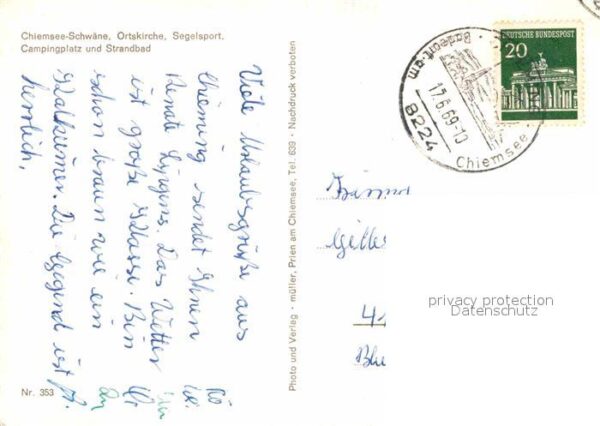 Chiemsee-Schwäne, Ortskirche, Segelsport,
Campingplatz und Strandbad
Viele Urlaubsgrüße aus
Chieming sendet Ihnen
Renate Das Wetter
ist große Klasse. Bin
schon braun wie ein
Die Gegend ist
herrlich,
Nr. 353
Photo und Verlag · müller, Prien am Chiemsee, Tel. 639 · Nachdruck verboten
Badeort am
17.6.69-10
8224
Chiemsee
DEUTSCHE BUNDESPOST
20
privacy protection
Datenschutz